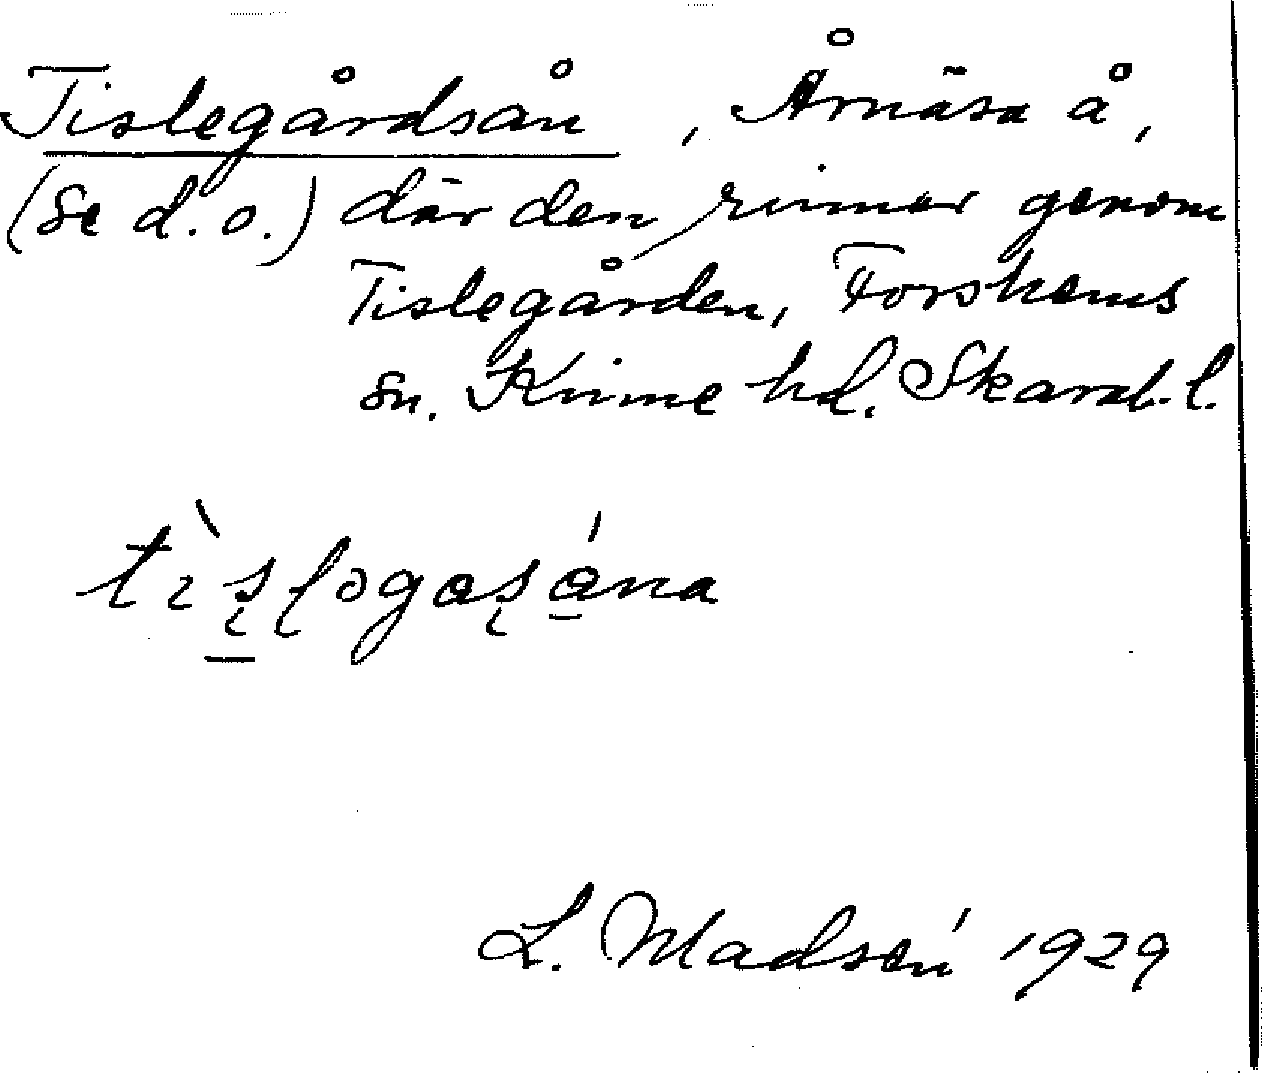 Tislegårdsån, Årnäsa å,
(se d.o.) där den rinner genom
Tislegården, Forshems
sn. Kinne hd. Skarab. l.
L. Madsén 1929